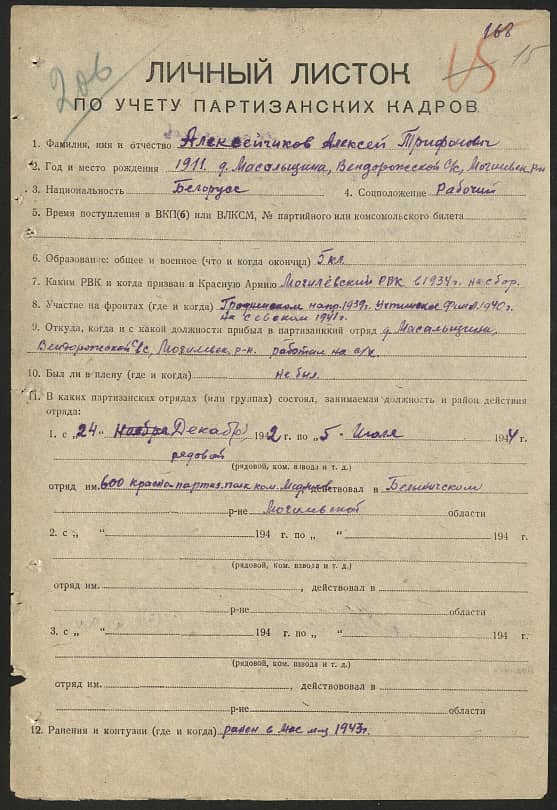 168
206
15
ЛИЧНЫЙ ЛИСТОК
ПО УЧЕТУ ПАРТИЗАНСКИХ КАДРОВ
1. Фамилия, имя и отчество Алексейчиков Алексей Трифонович
2. Год и место рождения 1911. д. Масальщина, Вендорожской с/с, Могилевск. р-н
3. Национальность Белорус 4. Соцположение Рабочий
5. Время поступления в ВКП(б) или ВЛКСМ, № партийного или комсомольского билета
6. Образование: общее и военное (что и когда окончил) 5 кл.
7. Каким РВК и когда призван в Красную Армию Могилёвский РВК в 1934 г. на сбор.
8. Участие на фронтах (где и когда) Гродненском напр. 1939 г. Финл. 1940 г.
1941 г.
9. Откуда, когда и с какой должности прибыл в партизанкий отряд д. Масальщина,
Вендорожской с/с, Могилевск. р-н. работал на
10. Был ли в плену (где и когда) не был.
11. В каких партизанских отрядах (или группах) состоял, занимаемая должность и район действия
отряда:
1. с „24" Ноября Декабр, 1942 г. по „5 - Июля 1944 г.
рядовой
(рядовой, ком. взвода и т. д.)
отряд им. 600 партиз. полк ком. действовал в Белыничском
р-не Могилевской области
2. с „ " 194 г. по „ " 194 г.
(рядовой, ком. взвода и т. д.)
отряд им. , действовал в
р-не области
3. с „ " 194 г. по „ " 194 г.
(рядовой, ком. взвода и т. д.)
отряд им. , действововал в
р-не области
12. Ранения и контузии (где и когда) ранен в мае м-ц 1943 г.